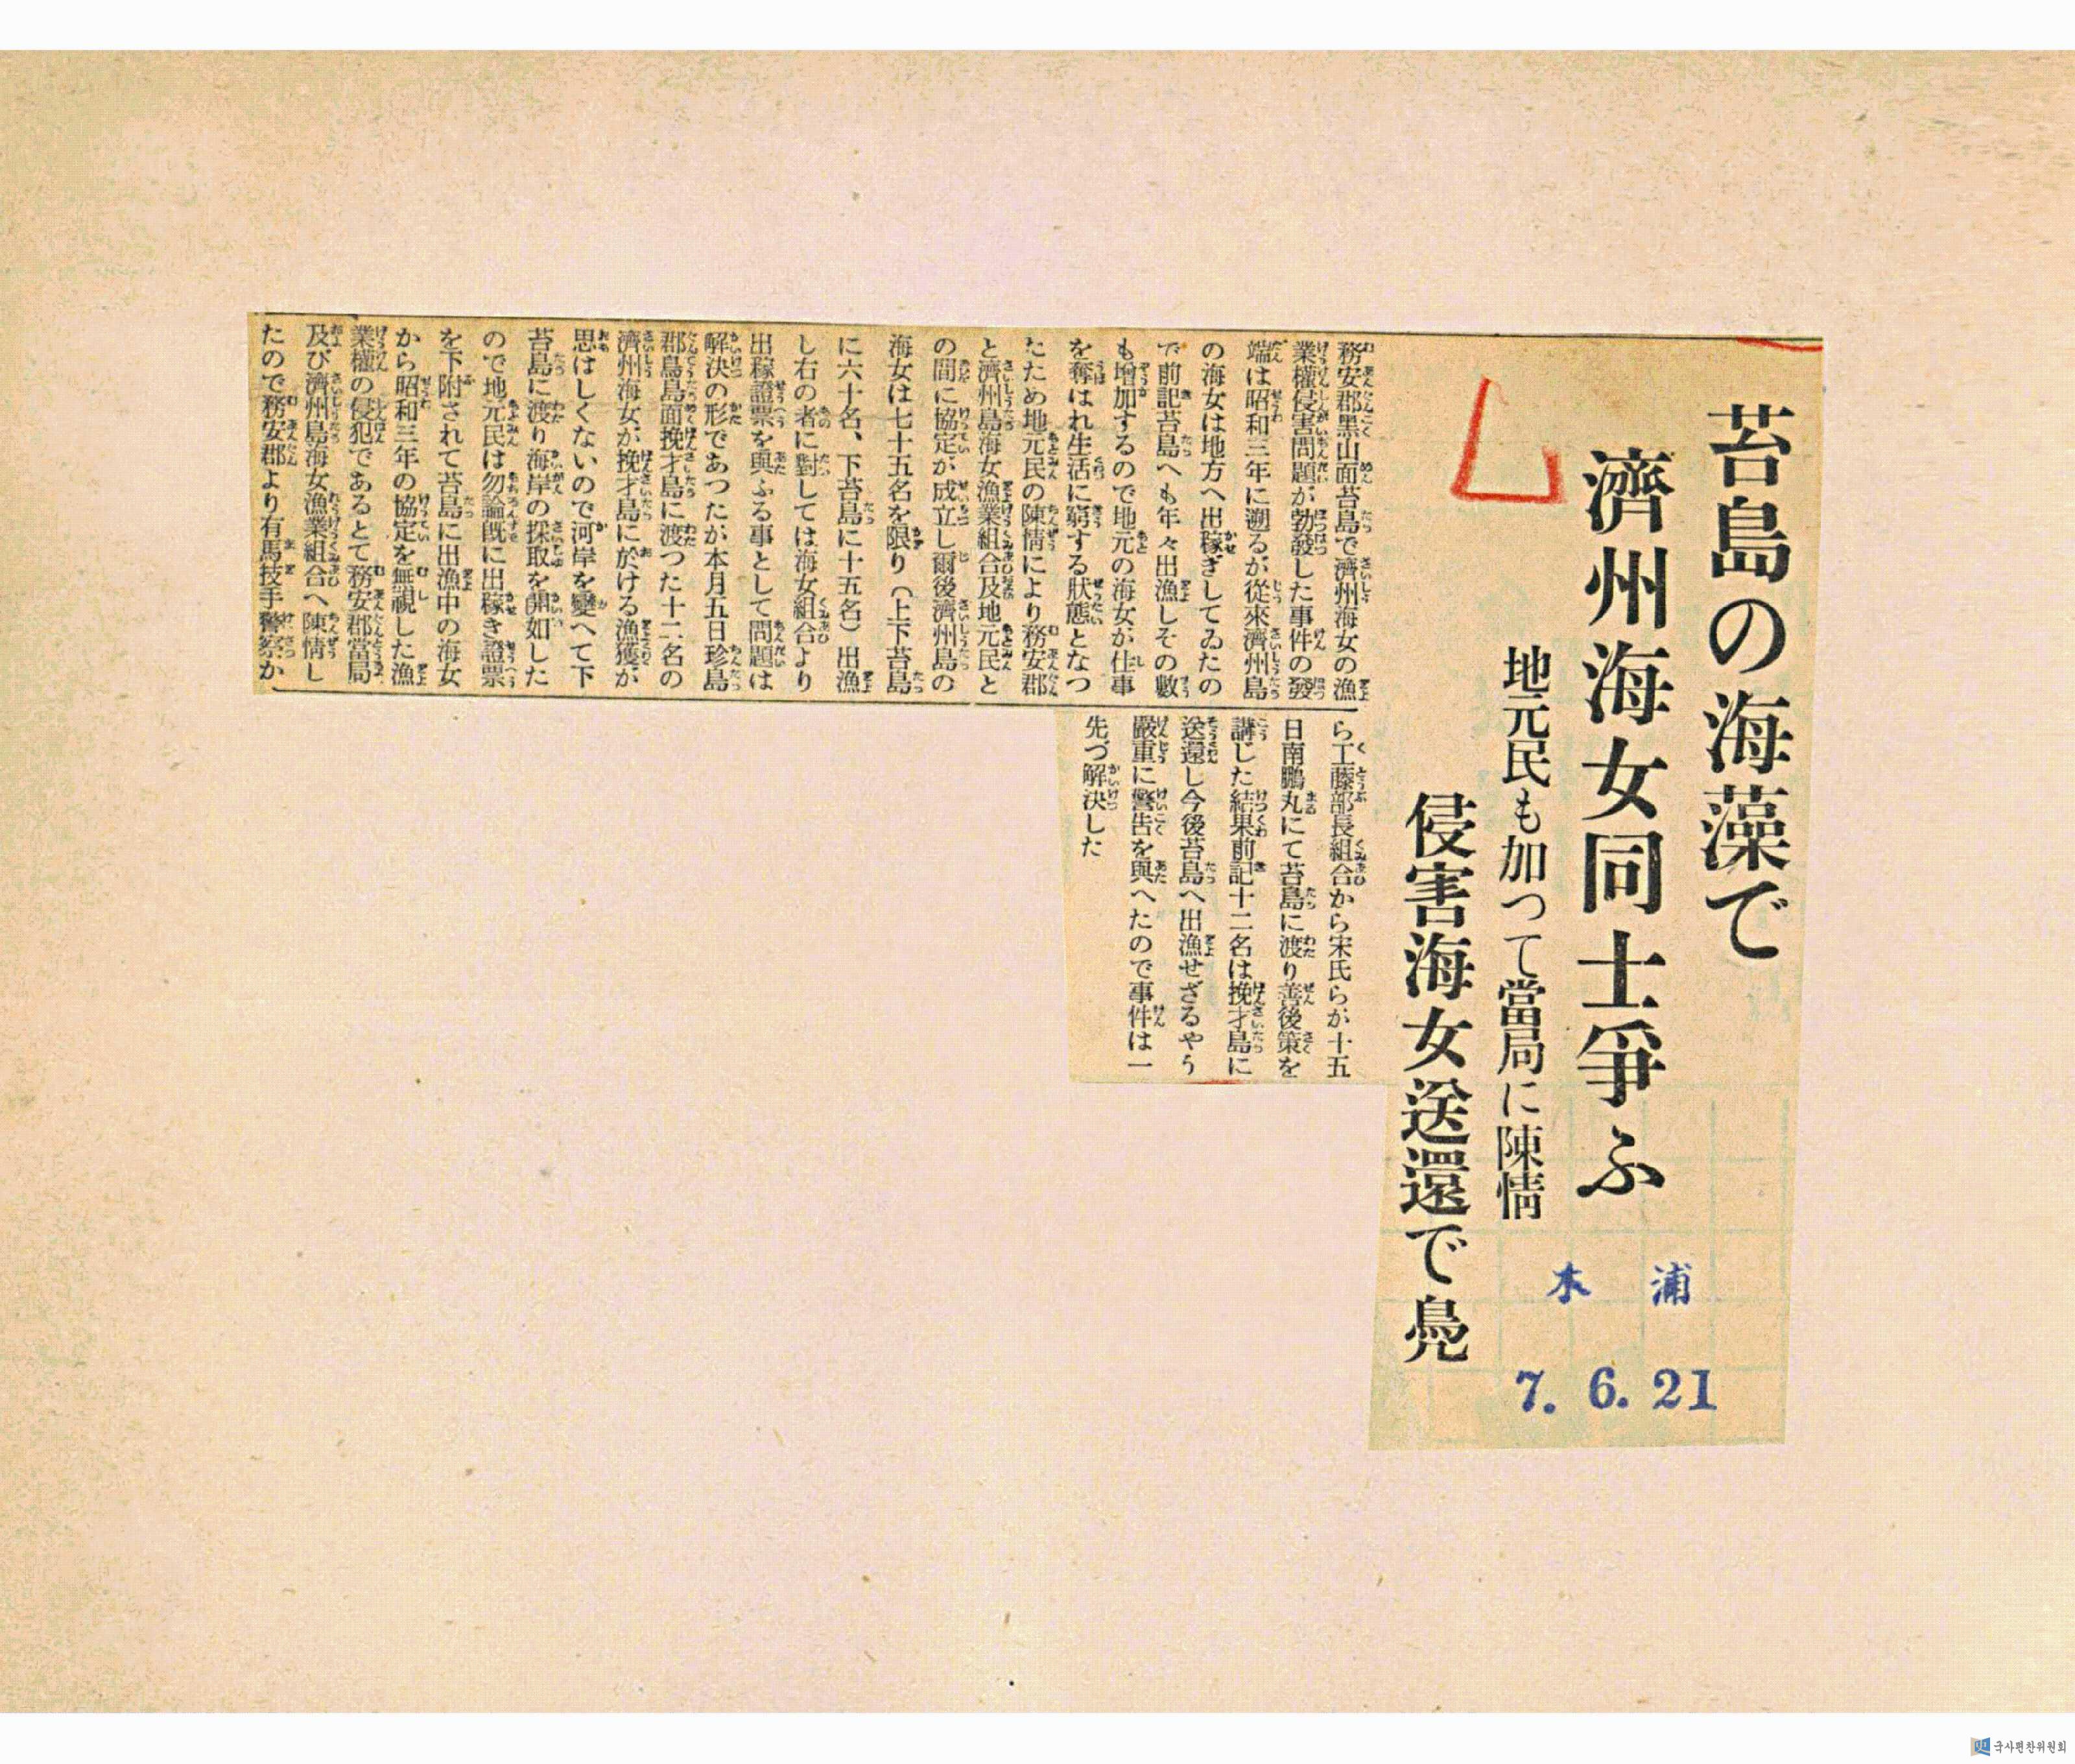 苔島の海藻で
濟州海女同士爭ふ
地元民も加つて當局に陳情
侵害海女送還で鳧
木浦
7. 6. 21
務安郡黑山面苔島で濟州海女の漁
業權侵害問題が勃發した事件の發
端は昭和三年に遡るが從來濟州島
の海女は地方へ出稼ぎしてゐたの
で前記苔島へも年々出漁しその數
も增加するので地元の海女が仕事
を奪はれ生活に窮する狀態となつ
たため地元民の陳情により務安郡
と濟州島海女漁業組合及地元民と
の間に協定が成立し爾後濟州島の
海女は七十五名を限り（上下苔島
に六十名、下苔島に十五名）出漁
し右の者に對しては海女組合より
出稼證票を與ふる事として問題は
解決の形であつたが本月五日珍島
郡鳥島面挽才島に渡つた十二名の
濟州海女が挽才島に於ける漁獲が
思はしくないので河岸を變へて下
苔島に渡り海岸の採取を開如した
ので地元民は勿論既に出稼き證票
を下附されて苔島に出漁中の海女
から昭和三年の協定を無視した漁
業權の侵犯であるとて務安郡當局
及び濟州島海女漁業組合へ陳情し
たので務安郡より有馬技手警察か
ら工藤部長組合から宋氏らが十五
日南鵬丸にて苔島に渡り善後策を
講じた結果前記十二名は挽才島に
送還し今後苔島へ出漁せざるやう
嚴重に警告を與へたので事件は一
先づ解決した
국사편찬위원회